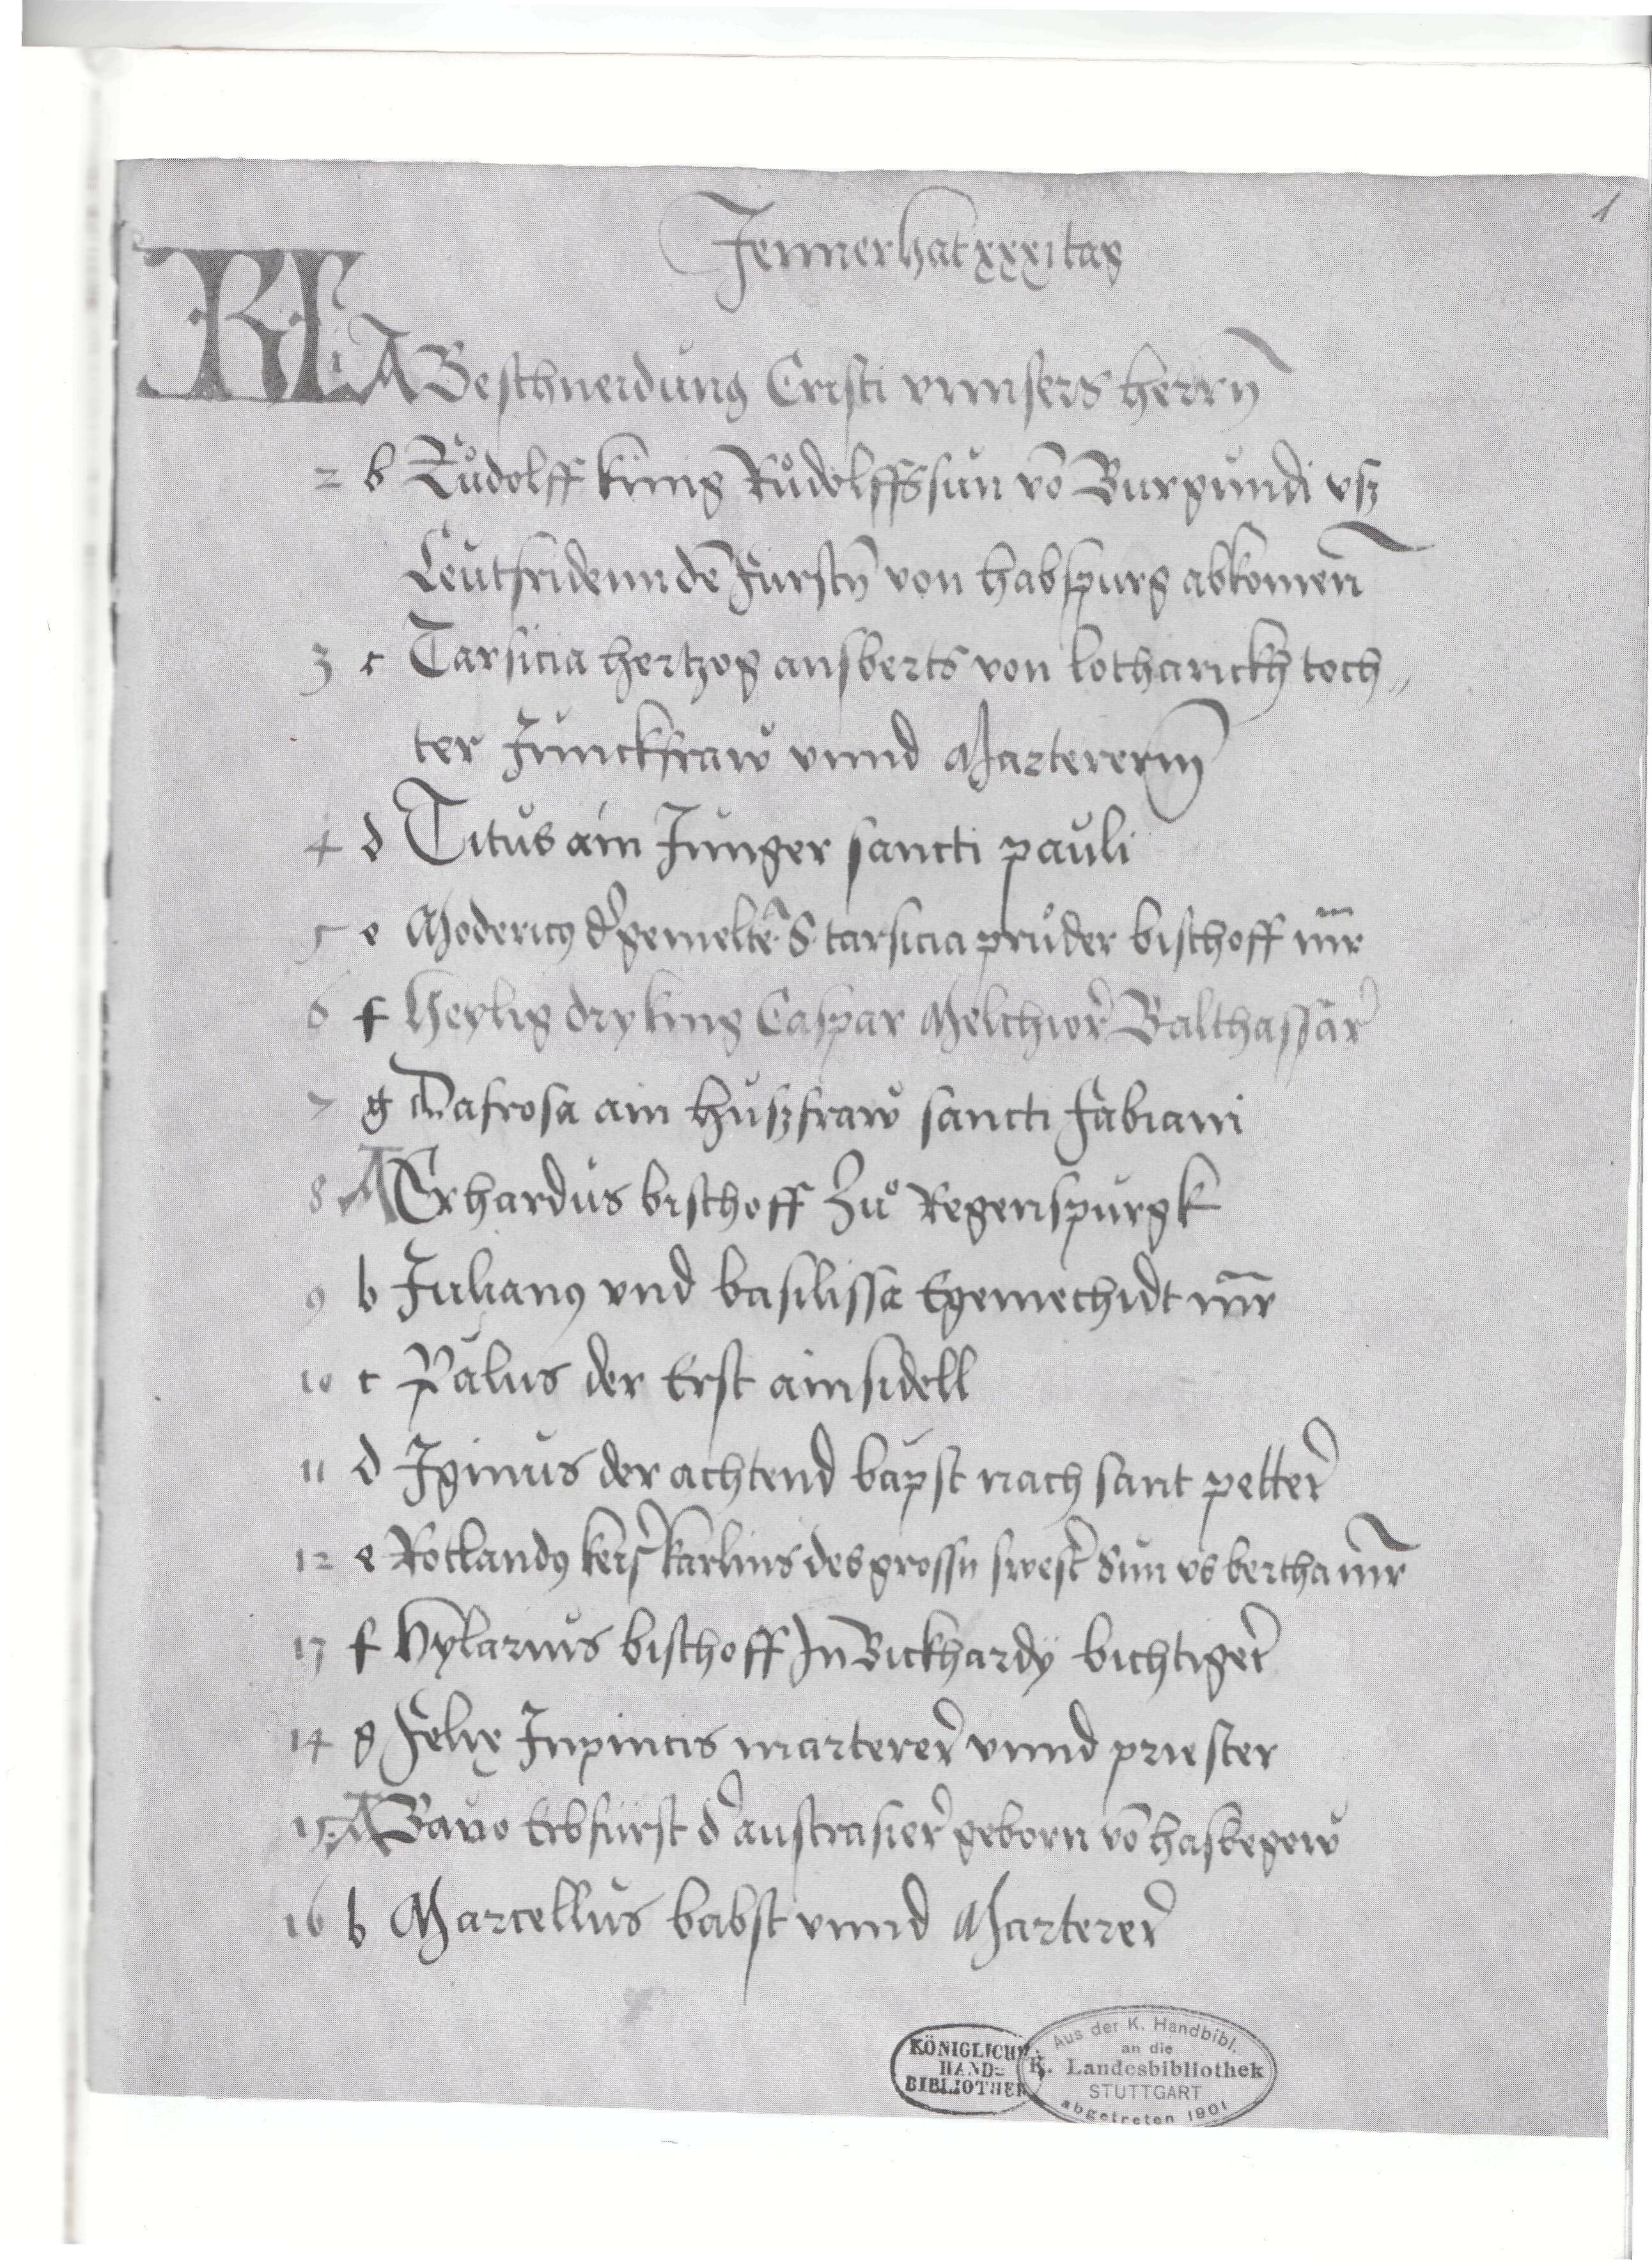 1
Jenner hat xxxi tag
KL A Beschneidung Cristi vnnsers herrn̄
2 b Růdolff küng Růdolffs sun vō Burgundi vsz
Leutfridenn dē Fürstn̄ von habspurg abkomen̄
3 c Tarsicia hertzog ansberts von lotharickh toch„
ter Junckfraw vnnd Martererin
4 d Titus ain Junger sancti pauli
5 e Modericꝰ d' gemeltē S. tarsicia průder bischoff m̄r
6 f Heylig dry king Caspar Melchior Balthassar
7 g Dafrosa ain huszfraw sancti Fabiani
8 A Erhardus bischoff Zů Regenspurgk
9 b Julianꝰ vnd basilissa Egemechidt m̄r
10 c Palus der Erst ainsidell
11 d Iginus der achtend bapst nach sant petter
12 e Rotlandꝰ keis' karlins des grossn̄ swest' Sun vs bertha m̄r
13 f Hylarius bischoff In Bickhardÿ bichtiger
14 g Felix Inpincis marterer vnnd priester
15 A Bauo Erbfürst d' austrasier geborn vō hasbegow
16 b Marcellus babst vnnd Marterer
KÖNIGLICHE
HAND=
BIBLIOTHEK
Aus der K. Handbibl.
an die
K. Landesbibliothek
STUTTGART
abgetreten 1901